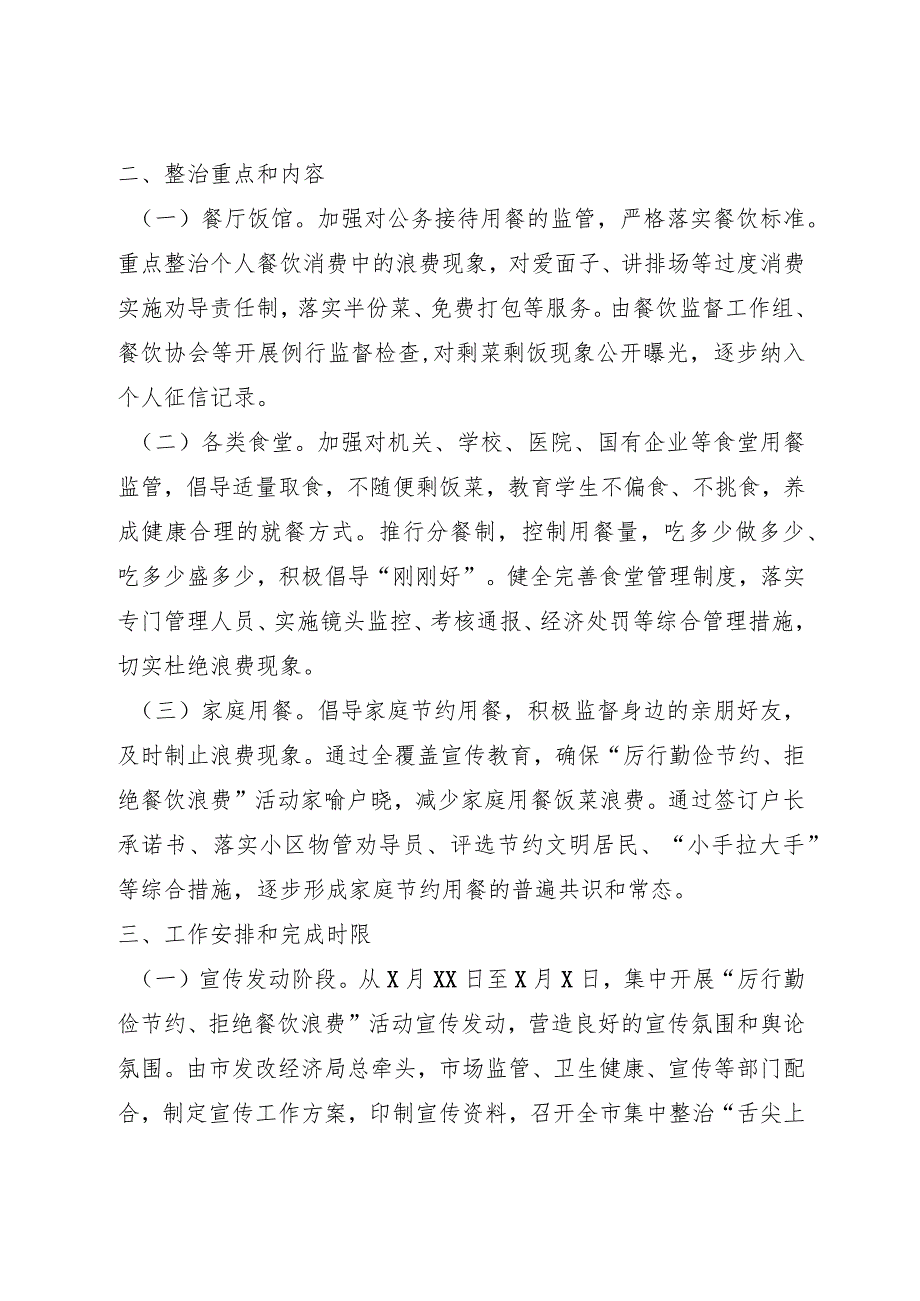 二、整治重点和内容
（一）餐厅饭馆。加强对公务接待用餐的监管，严格落实餐饮标准。
重点整治个人餐饮消费中的浪费现象，对爱面子、讲排场等过度消费
实施劝导责任制，落实半份菜、免费打包等服务。由餐饮监督工作组、
餐饮协会等开展例行监督检查,对剩菜剩饭现象公开曝光，逐步纳入
个人征信记录。
（二）各类食堂。加强对机关、学校、医院、国有企业等食堂用餐
监管，倡导适量取食，不随便剩饭菜，教育学生不偏食、不挑食，养
成健康合理的就餐方式。推行分餐制，控制用餐量，吃多少做多少、
吃多少盛多少，积极倡导“刚刚好”。健全完善食堂管理制度，落实
专门管理人员、实施镜头监控、考核通报、经济处罚等综合管理措施，
切实杜绝浪费现象。
（三）家庭用餐。倡导家庭节约用餐，积极监督身边的亲朋好友，
及时制止浪费现象。通过全覆盖宣传教育，确保“厉行勤俭节约、拒
绝餐饮浪费”活动家喻户晓，减少家庭用餐饭菜浪费。通过签订户长
承诺书、落实小区物管劝导员、评选节约文明居民、“小手拉大手”
等综合措施，逐步形成家庭节约用餐的普遍共识和常态。
三、工作安排和完成时限
（一）宣传发动阶段。从X月XX日至X月X日，集中开展“厉行勤
俭节约、拒绝餐饮浪费”活动宣传发动，营造良好的宣传氛围和舆论
氛围。由市发改经济局总牵头，市场监管、卫生健康、宣传等部门配
合，制定宣传工作方案，印制宣传资料，召开全市集中整治“舌尖上